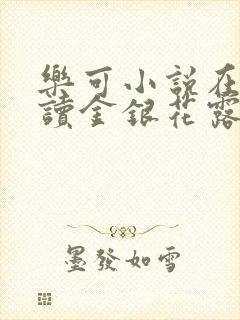 樂可小說在
讀金銀花露
墨發如雪